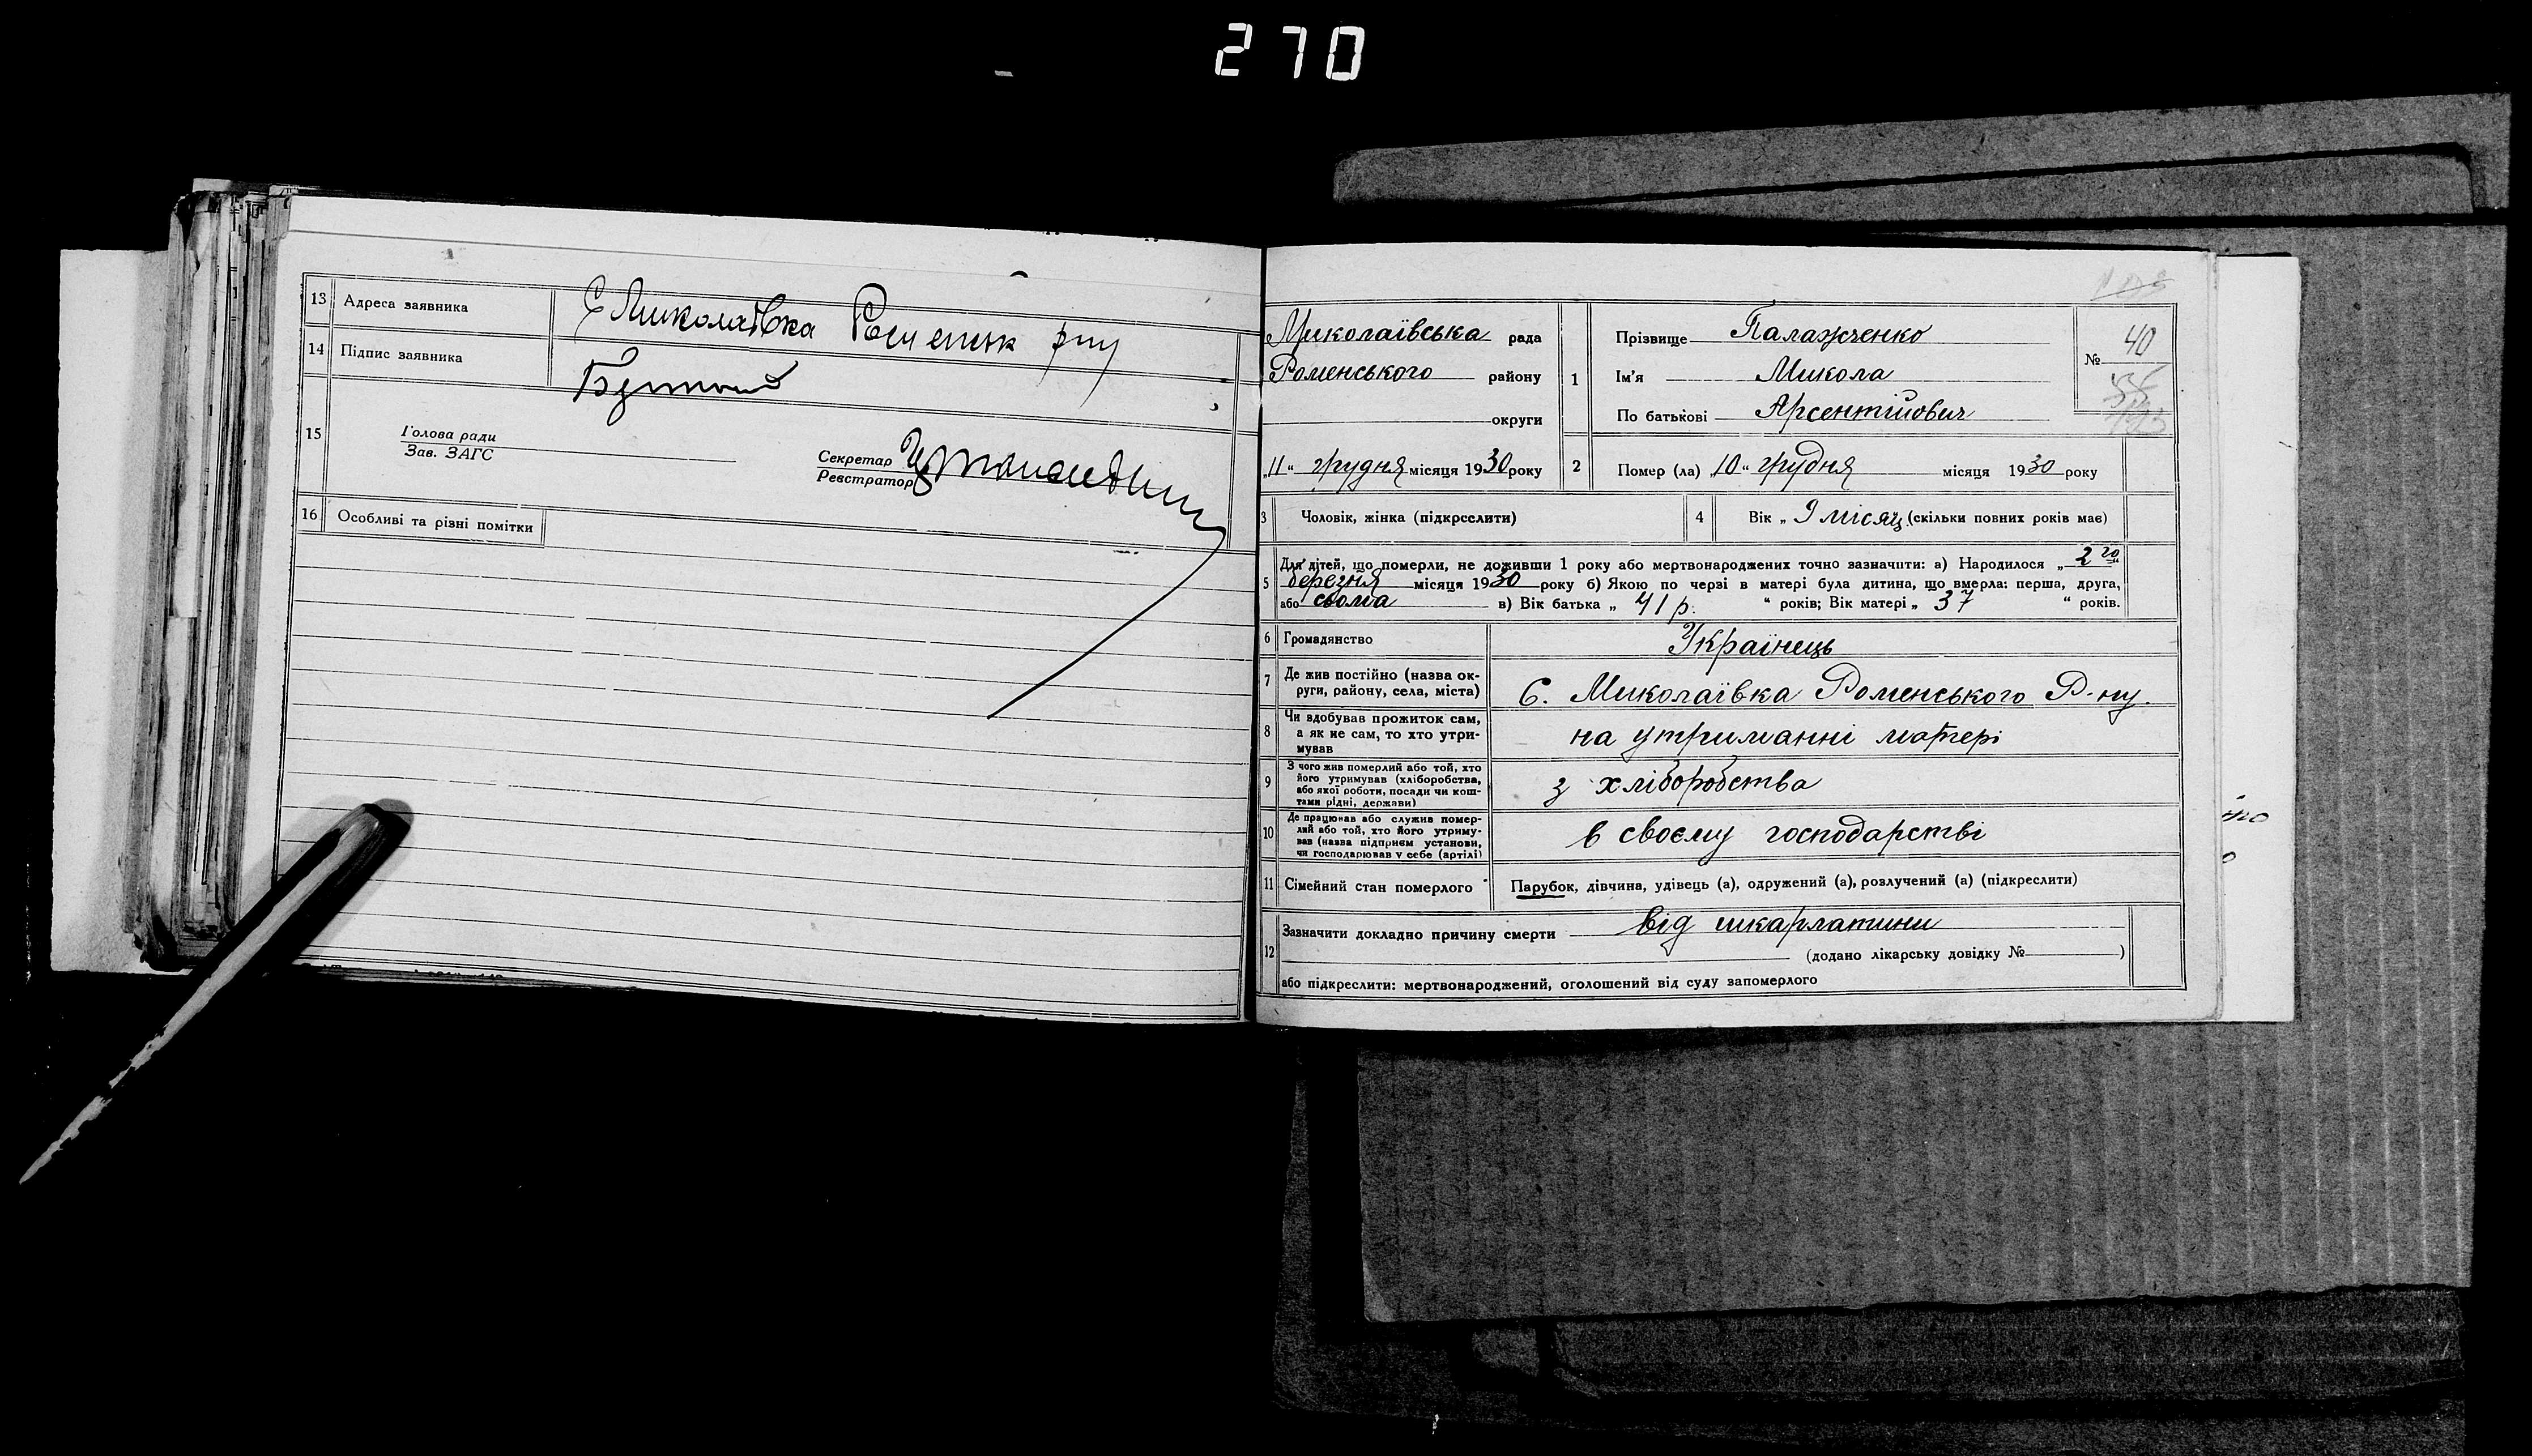 270
13 Адреса заявника С Миколаївка Роменськ рну
14 Підпис заявника
15 Голова ради
Зав. ЗАГС
Секретар
Реєстратор
16 Особливі та різні помітки
Миколаївська рада
Роменського району
округи
„11“ грудня місяця 1930 року
1 Прізвище Палажченко
Ім'я Микола
По батькові Арсентійович
№ 40
2 Помер (ла) „10“ грудня місяця 1930 року
3 Чоловік, жінка (підкреслити)
4 Вік „ 9 місяц. (скільки повних років має)
5 Для дітей, що померли, не доживши 1 року або мертвонароджених точно зазначити: а) Народилося „ 2го “
березня місяця 1930 року б) Якою по черзі в матері була дитина, що вмерла: перша, друга,
або сьома в) Вік батька „ 41 р. “ років; Вік матері „ 37 “ років.
6 Громадянство Українець
7 Де жив постійно (назва ок-
руги, району, села, міста) С. Миколаївка Роменського Р-ну.
8 Чи здобував прожиток сам,
а як не сам, то хто утри-
мував на утриманні матері
9 З чого жив померлий або той, хто
його утримував (хліборобства,
або якої роботи, посади чи кош-
тами рідні, держави) з хліборобства
10 Де працював або служив помер-
лий або той, хто його утриму-
вав (назва підприєм установи,
чи господарював у себе (артілі) в своєму господарстві
11 Сімейний стан померлого Парубок, дівчина, удівець (а), одружений (а), розлучений (а) (підкреслити)
12 Зазначити докладно причину смерти від шкарлатини
(додано лікарську довідку № )
або підкреслити: мертвонароджений, оголошений від суду запомерлого